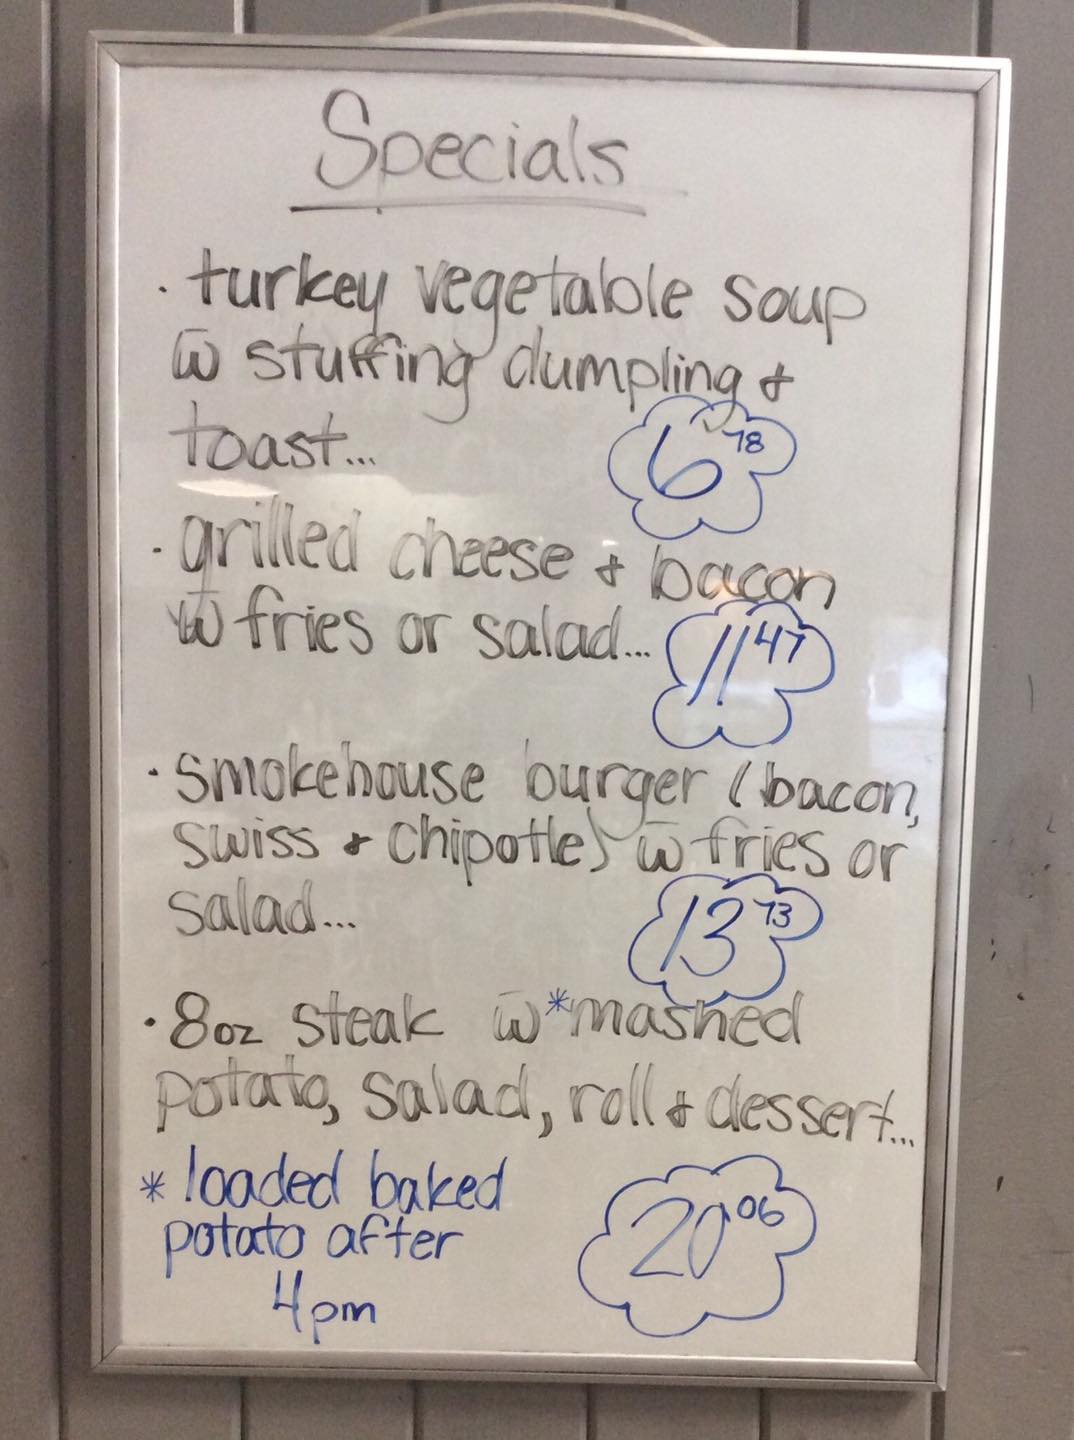 Specials
· turkey vegetable soup
w̄ stuffing dumpling &
toast... 6 78
· grilled cheese & bacon
w̄ fries or salad... 11 47
· smokehouse burger (bacon,
swiss & chipotle) w̄ fries or
salad... 13 73
· 8oz steak w̄ *mashed
potato, salad, roll & dessert...
* loaded baked
potato after 20 06
4pm